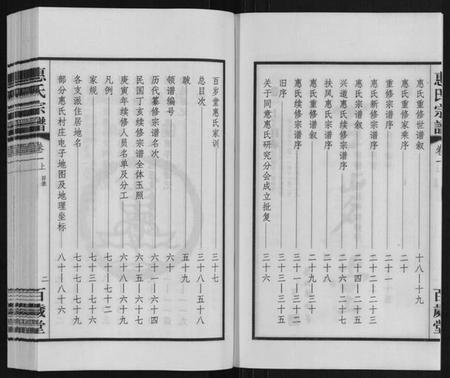 惠氏宗譜
卷一
百歲堂
惠氏重修世谱叙 十八—十九
惠氏重修家乘序 二十
重修宗谱序 二十
惠氏新修宗谱序 二十二—二十三
惠氏宗谱叙 二十四—二十五
兴道惠氏续修宗谱序 二十六—二十七
扶风惠氏宗谱序 二十八—二十九
惠氏重修谱叙 三十
惠氏续修宗谱序 三十一—三十二
旧序 三十三—三十五
关于同意惠氏研究分会成立批复 三十六
百岁堂惠氏家训 三十七
总目次 三十八—五十八
跋 五十九
领谱编号 六十
历代纂修宗谱名次 六十一—六十四
民国丁亥续修宗谱全体玉照 六十五—六十七
庚寅年续修人员名单及分工 六十八—六十九
凡例 七十—七十二
家规 七十三—七十六
各支派住居地名 七十七—七十九
部分惠氏村庄电子地图及地理坐标 八十—八十六
惠氏宗譜
卷一
上
二
百歲堂